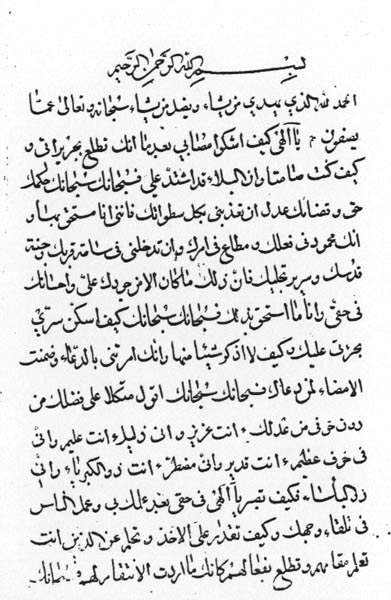 بسم الله الرحمن الرحيم
الحمد لله الذي يبدي من يشاء ويفيد من يشاء سبحانه وتعالى عما
يصفون يا آلهي كيف اشكوا مصابي بعدما انك تطلع بحزني و
كيف كنت صامتا وان البلاء قد اشتد علي فسبحانك سبحانك حكمك
حق وقضائك عدل ان تعذبني بكل سطواتك فانني انا مستحق بها و
انك محمود في فعلك ومطاع في امرك وان تدخلني في ساحة قربك وجنة
قدسك وسرير تجليك فان ذلك ما كان الا من جودك علي واحسانك
في حقي وانا ما استحق بذلك فسبحانك سبحانك كيف اسكن سري
بحزني عليك وكيف لا اذكر شيئا منها وانك امرتني بالدعاء وضمنت
الامضاء لمن دعاك فسبحانك سبحانك اقول متكلا على فضلك من
دون خوفي من عدلك انت عزيز واني ذليل انت عليم واني
في خوف عظيم انت قدير واني مضطر انت ذو الكبرياء واني
ذو البأساء فكيف نصبر يا آلهي في حقي بعد علمك بي وعمل الناس
في تلقاء وجهك وكيف تقدر على الاخذ وتحلم عن الذين انت
تعلم مقامهم وتطلع بفعالهم كانك ما اردت الانتقام لهم